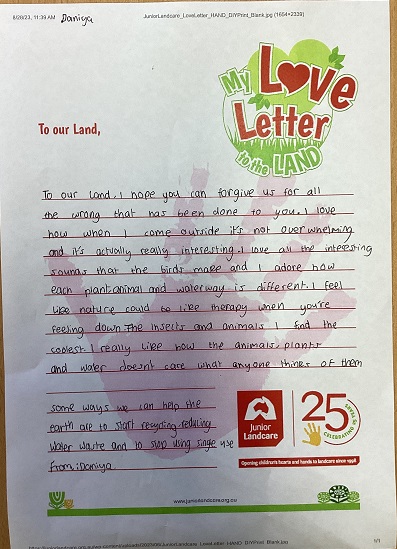 8/28/23, 11:39 AM
Daniya
JuniorLandcare_LoveLetter_HAND_DIYPrint_Blank.jpg (1654×2339)
My Love
Letter
to the LAND
To our Land,
To our Land, I hope you can forgive us for all
the wrong that has been done to you. I love
how when I come outside it's not overwhelming
and it's actually really interesting. I love all the interesting
sounds that the birds make and I adore how
each plant animal and waterway is different. I feel
like nature could to like therapy when you're
feeling down. The insects and animals I find the
coolest. I really like how the animals, plants
and water doesn't care what anyone thinks of them
some ways we can help the
earth are to start recycling, reducing
water waste and to stop using single use
From: Daniya
Junior
Landcare
25 YEARS OF
CELEBRATING
Opening children's hearts and hands to landcare since 1998
www.juniorlandcare.org.au
1/1